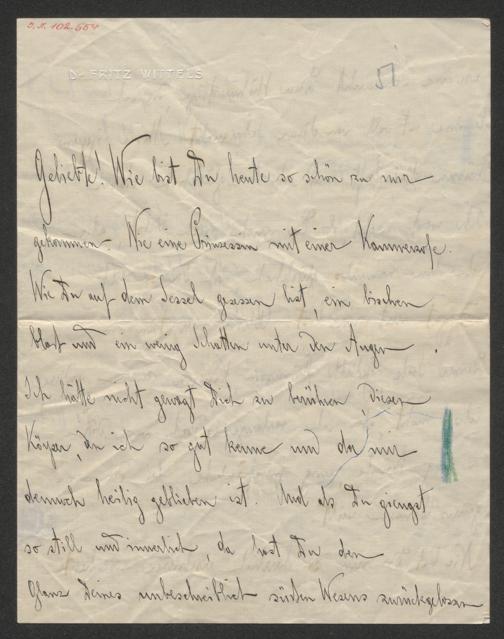 J.N. 102.664
Dr FRITZ WITTELS
51
Geliebte! Wie bist Du heute so schön zu mir
gekommen. Wie eine Prinzessin mit einer Kammerzofe.
Wie Du auf dem Sessel gesessen bist, ein bischen
blaß und ein wenig Schatten unter den Augen.
Ich hätte nicht gewagt Dich zu berühren, diesen
Körper, den ich so gut kenne und der mir
dennoch heilig geblieben ist. Und als Du giengst
so still und innerlich, da hast Du den
Glanz Deines unbeschreiblich süßen Wesens zurückgelassen